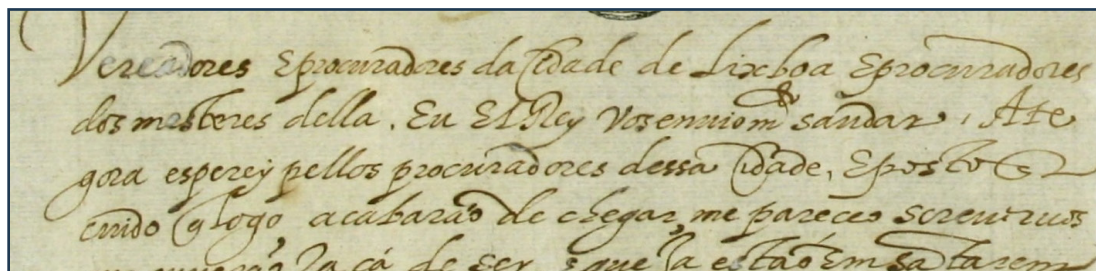 Vereadores E procuradores da Cidade de Lixboa E procuradores
dos mesteres della. Eu El Rey vos enuio mto saudar, Ate
gora esperey pellos procuradores dessa Cidade, E posto q
cuido q logo acabarão de chegar, me pareceo screueruos
ja cá de ser, e que ja estão Em santarem